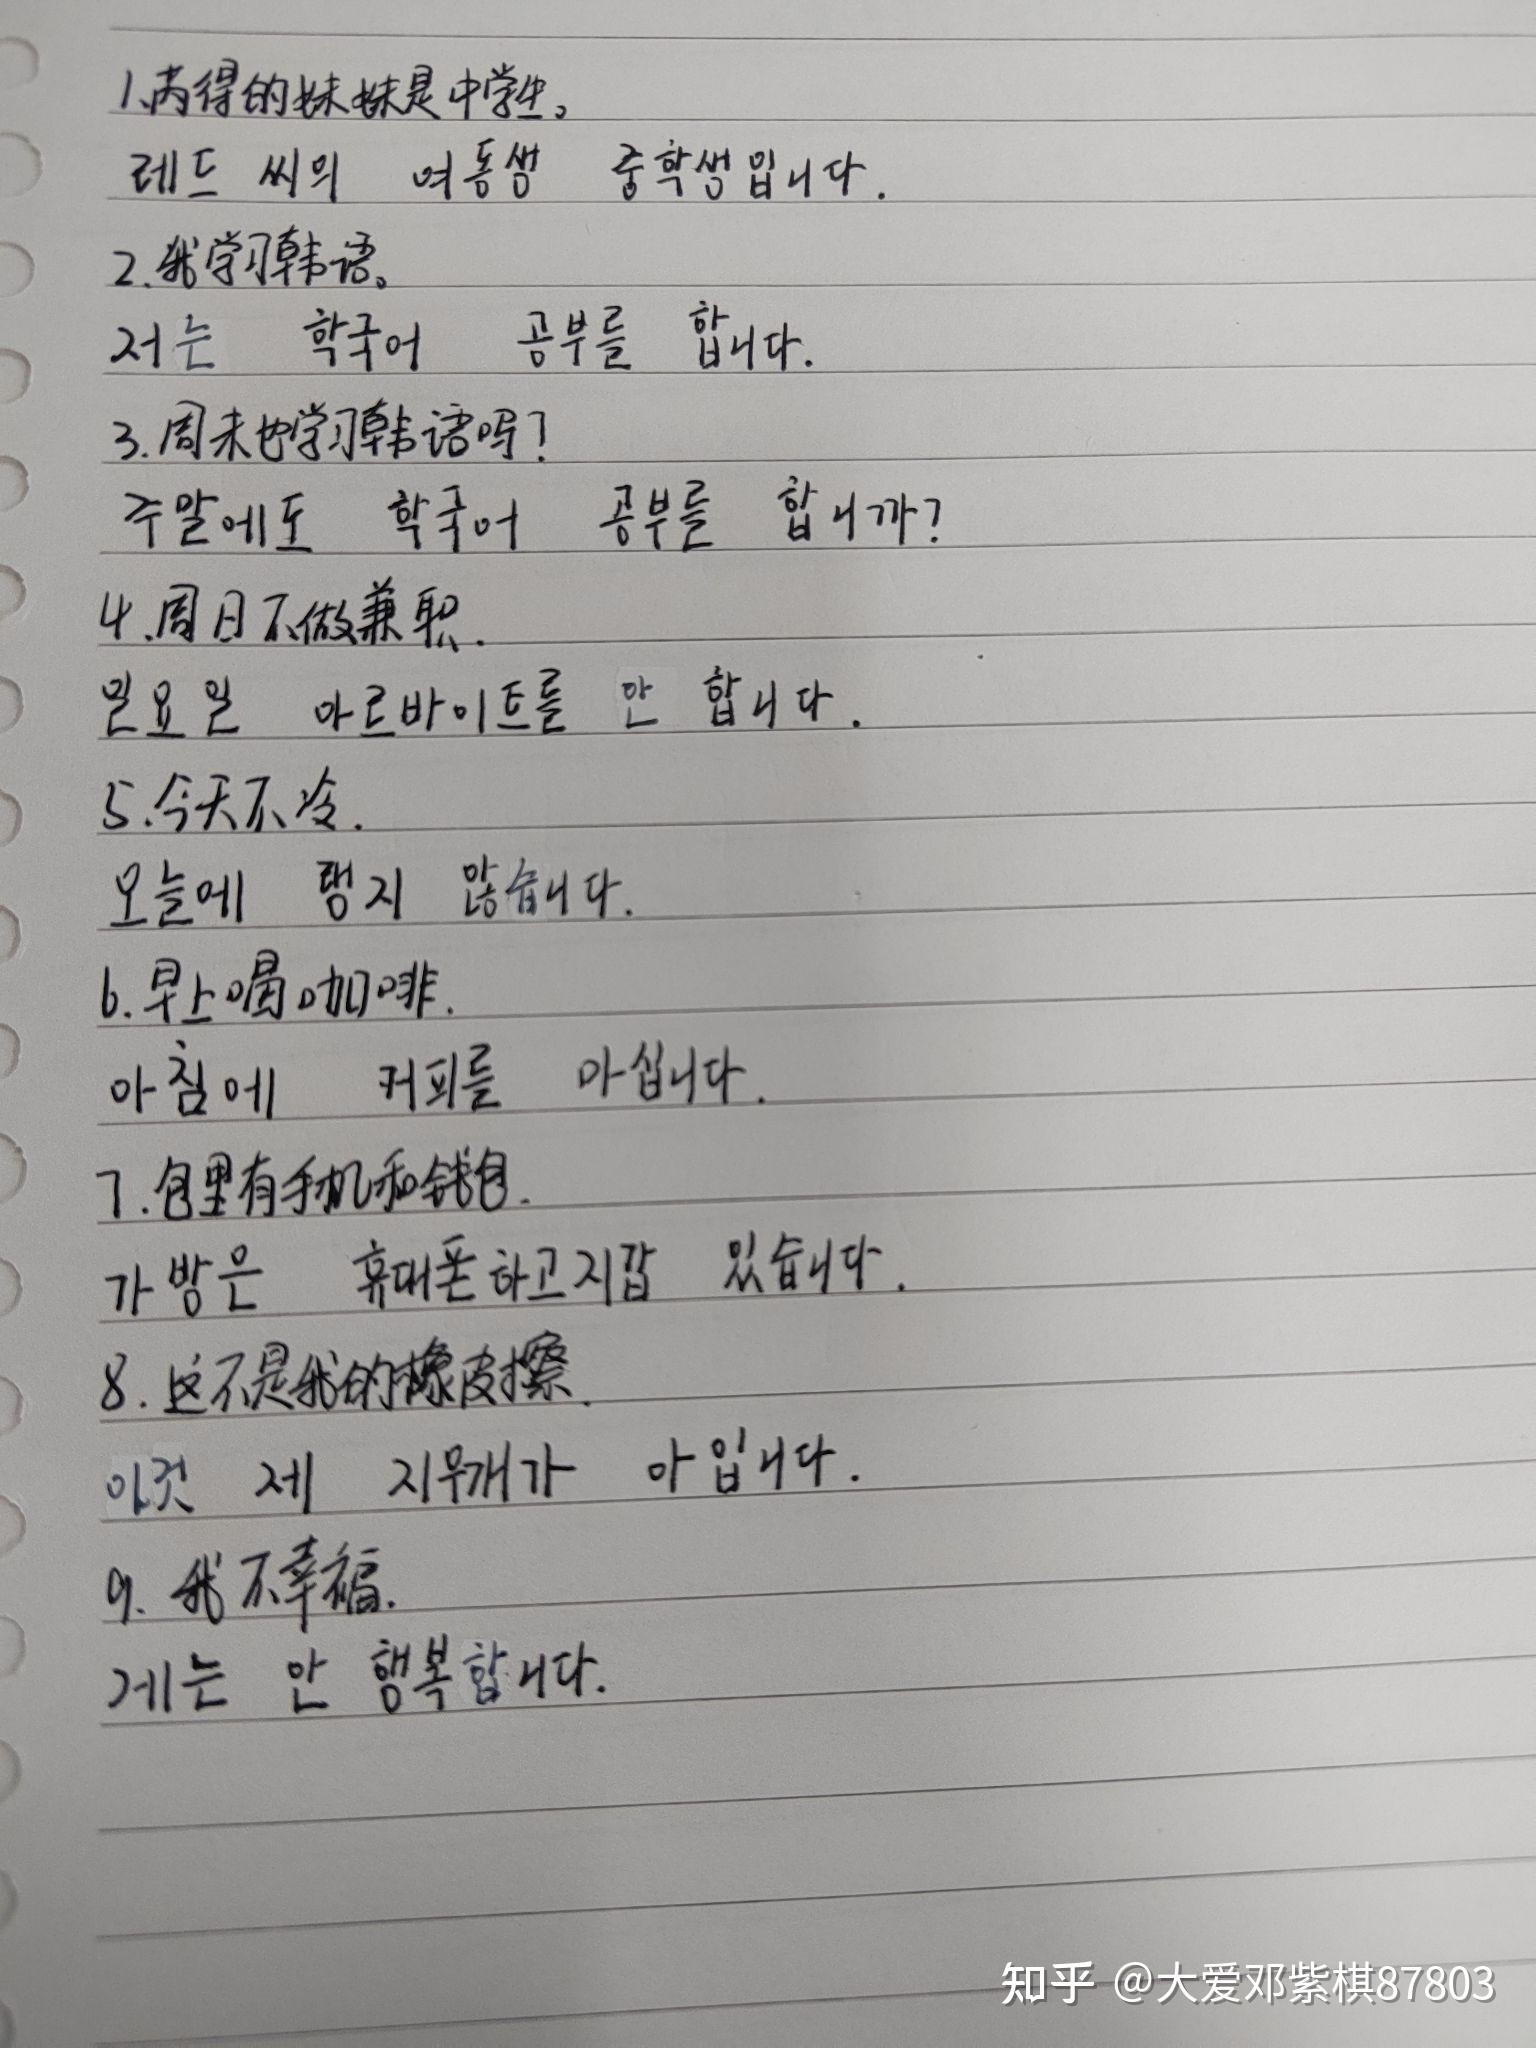 1.芮得的妹妹是中学生。
레드 씨의 여동생 중학생입니다.
2.我学习韩语。
저는 학국어 공부를 합니다.
3.周未也学习韩语吗?
주말에도 학국어 공부를 합니까?
4.周日不做兼职.
일요일 아르바이트를 안 합니다.
5.今天不冷.
오늘에 랭지 않습니다.
6.早上喝咖啡.
아침에 커피를 마십니다.
7.包里有手机和钱包.
가방은 휴대폰하고지갑 있습니다.
8.这不是我的橡皮擦.
이것 제 지무개가 아입니다.
9.我不幸福.
게는 안 행복합니다.
知乎 @大爱邓紫棋87803